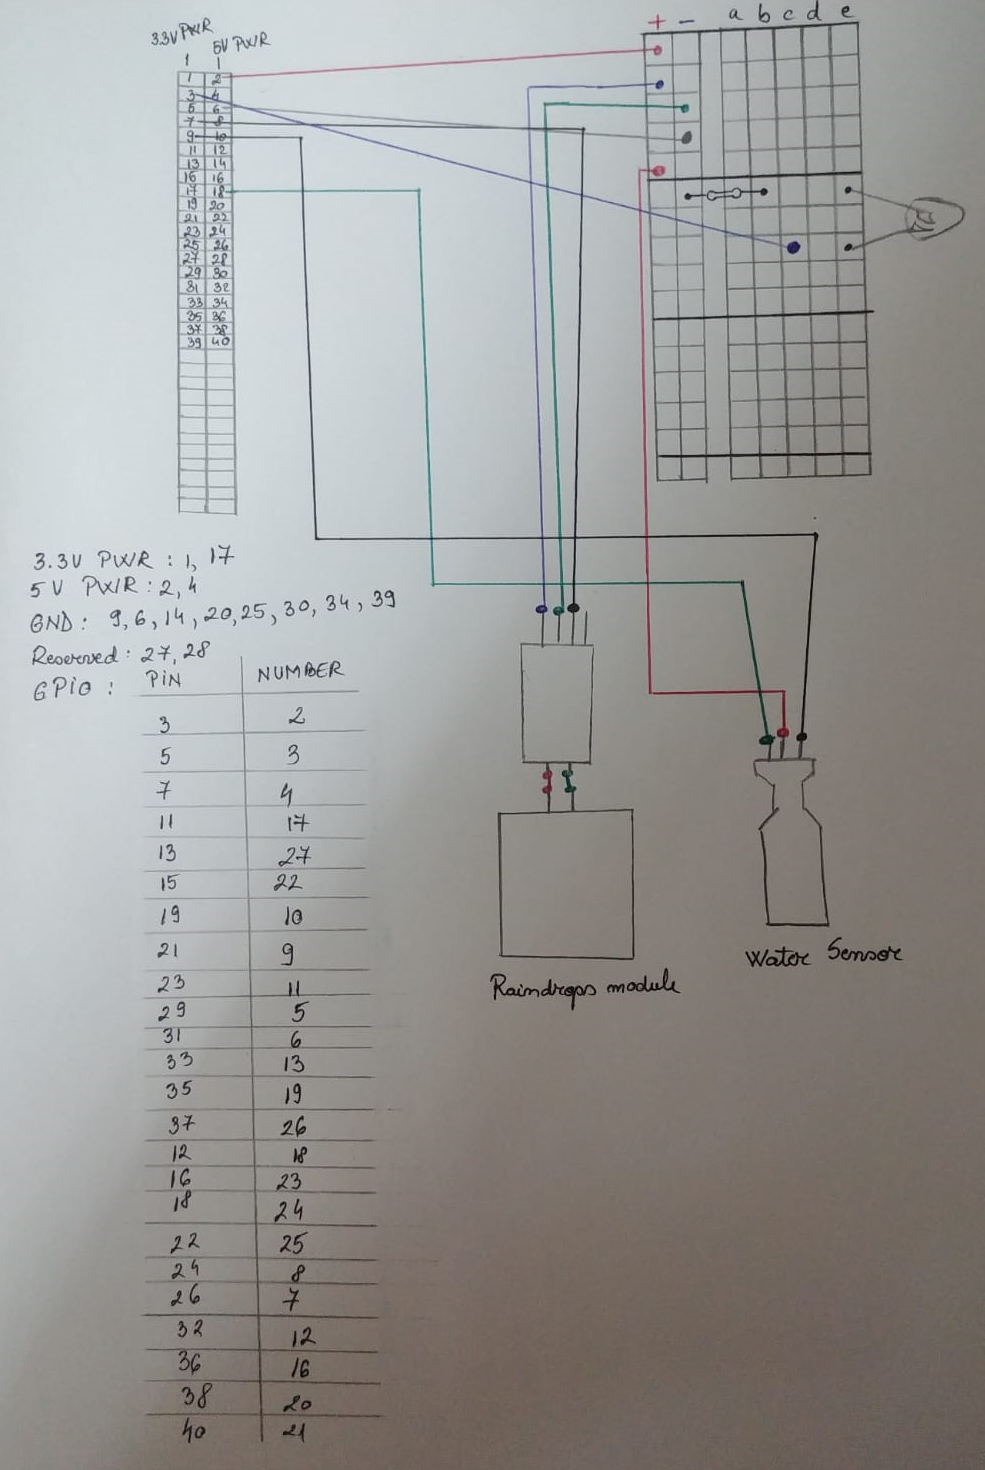 3.3V PWR
5V PWR
1 1
1 2
3 4
5 6
7 8
9 10
11 12
13 14
15 16
17 18
19 20
21 22
23 24
25 26
27 28
29 30
31 32
33 34
35 36
37 38
39 40
+ - a b c d e
3.3V PWR : 1, 17
5V PWR : 2, 4
GND : 9, 6, 14, 20, 25, 30, 34, 39
Reserved : 27, 28
GPiO : PiN NUMBER
3 2
5 3
7 4
11 17
13 27
15 22
19 10
21 9
23 11
29 5
31 6
33 13
35 19
37 26
12 18
16 23
18 24
22 25
24 8
26 7
32 12
36 16
38 20
40 21
Raindrops module
Water Sensor